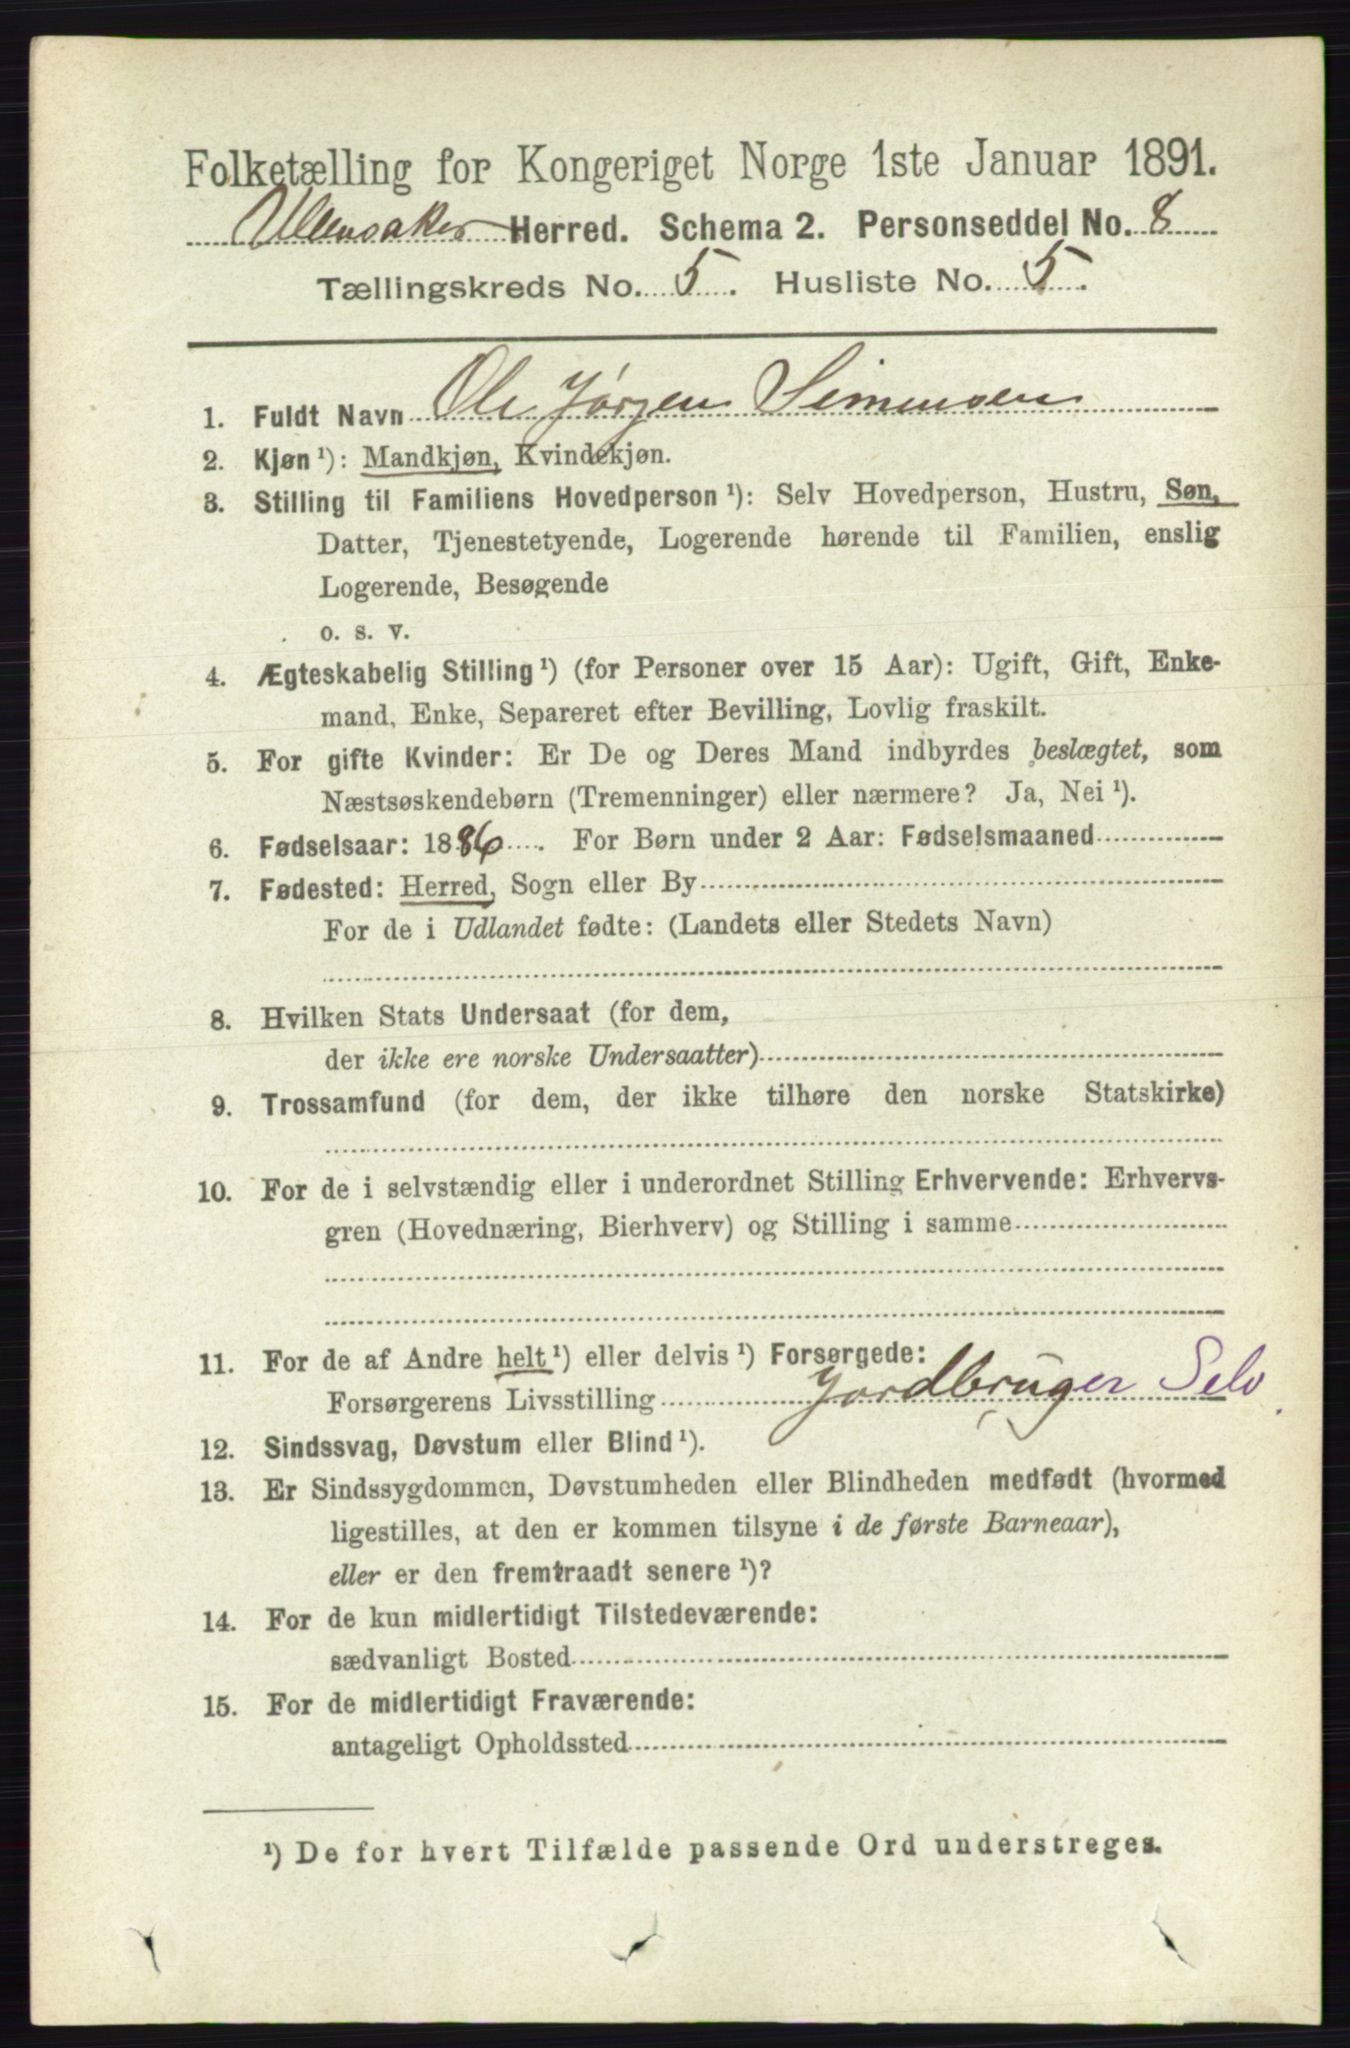 Folketælling for Kongeriget Norge 1ste Januar 1891.
Ullensaker Herred. Schema 2. Personseddel No. 8
Tællingskreds No. 5. Husliste No. 5.
1. Fuldt Navn Ole Jørgen Simensen
2. Kjøn ¹): Mandkjøn, Kvindekjøn.
3. Stilling til Familiens Hovedperson ¹): Selv Hovedperson, Hustru, Søn,
Datter, Tjenestetyende, Logerende hørende til Familien, enslig
Logerende, Besøgende
o. s. v.
4. Ægteskabelig Stilling ¹) (for Personer over 15 Aar): Ugift, Gift, Enke-
mand, Enke, Separeret efter Bevilling, Lovlig fraskilt.
5. For gifte Kvinder: Er De og Deres Mand indbyrdes beslægtet, som
Næstsøskendebørn (Tremenninger) eller nærmere? Ja, Nei ¹).
6. Fødselsaar: 1886. For Børn under 2 Aar: Fødselsmaaned
7. Fødested: Herred, Sogn eller By
For de i Udlandet fødte: (Landets eller Stedets Navn)
8. Hvilken Stats Undersaat (for dem,
der ikke ere norske Undersaatter)
9. Trossamfund (for dem, der ikke tilhøre den norske Statskirke)
10. For de i selvstændig eller i underordnet Stilling Erhvervende: Erhvervs-
gren (Hovednæring, Bierhverv) og Stilling i samme
11. For de af Andre helt ¹) eller delvis ¹) Forsørgede:
Forsørgerens Livsstilling Jordbruger Selv
12. Sindssvag, Døvstum eller Blind ¹).
13. Er Sindssygdommen, Døvstumheden eller Blindheden medfødt (hvormed
ligestilles, at den er kommen tilsyne i de første Barneaar),
eller er den fremtraadt senere ¹)?
14. For de kun midlertidigt Tilstedeværende:
sædvanligt Bosted
15. For de midlertidigt Fraværende:
antageligt Opholdssted
¹) De for hvert Tilfælde passende Ord understreges.